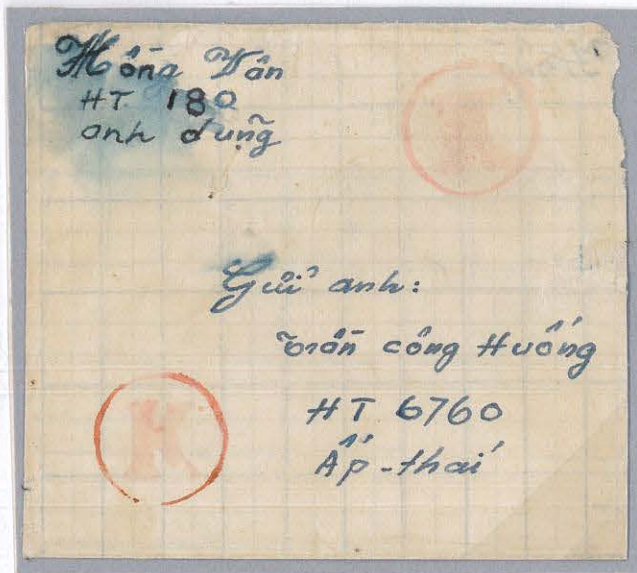 Hồng Vân
HT. 180
anh dũng
Gửi anh:
Trần công Huống
HT 6760
Ấp-thái
K